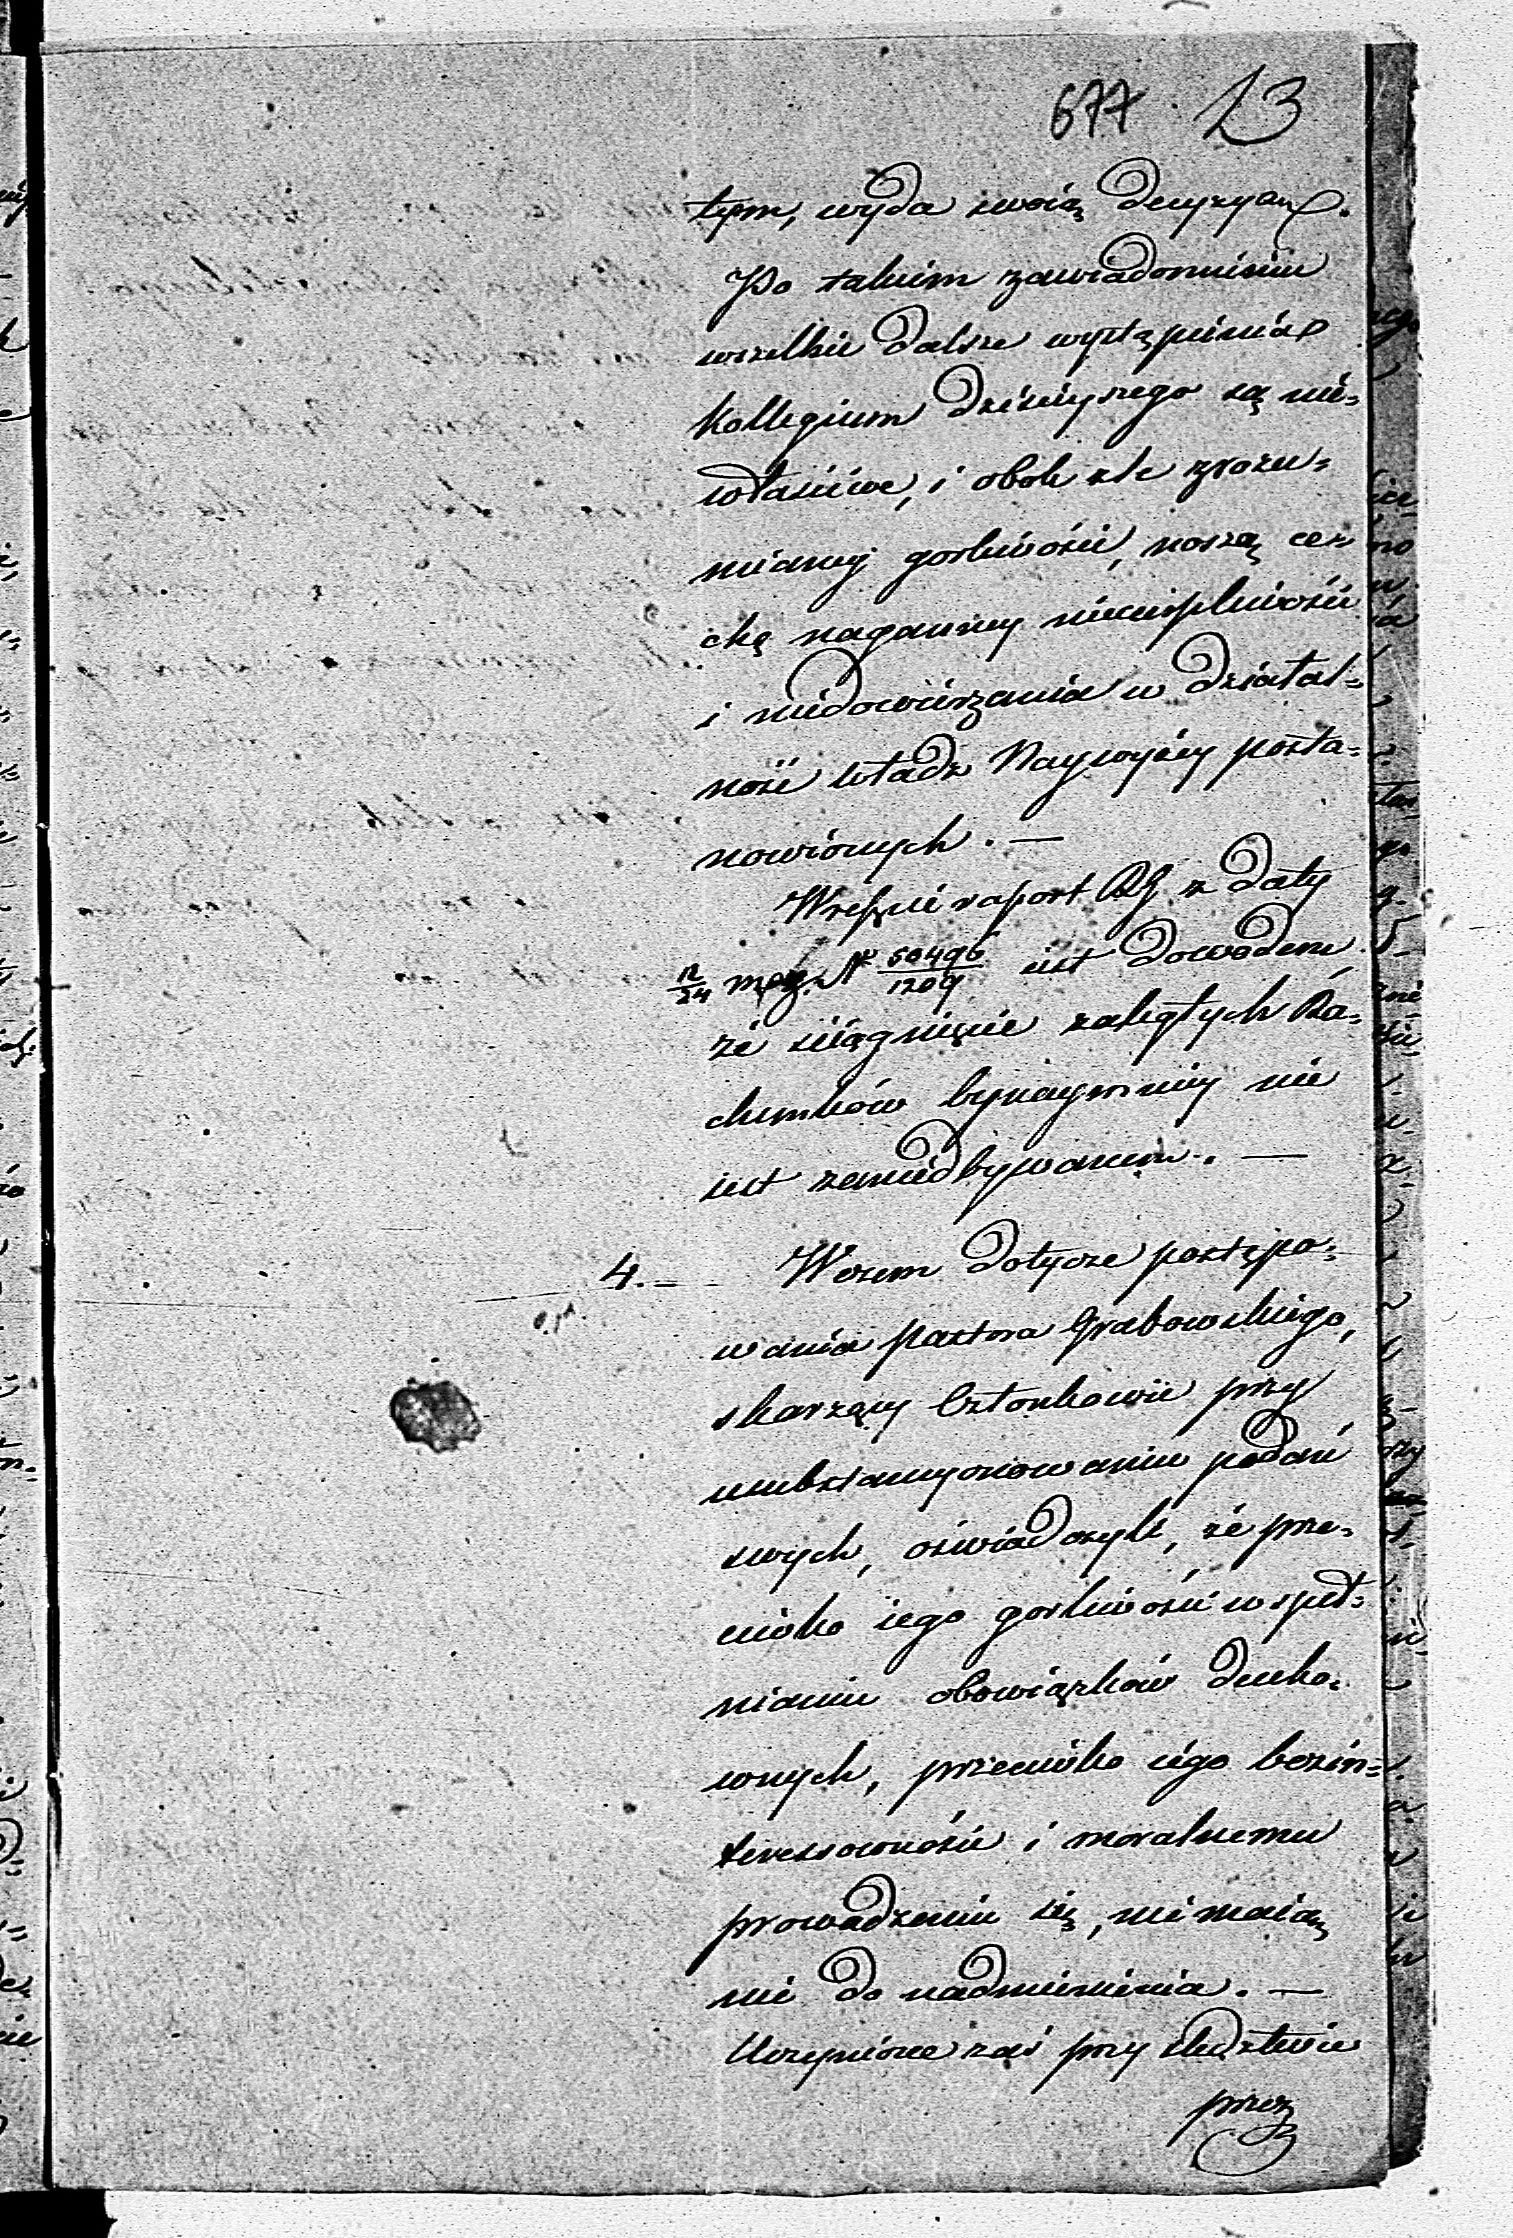 677. 13
tym, wyda swoią decyzyą.
Po takim zawiadomieniu
wszelkie dalsze wystąpienia
Kollegium dzisieyszego są nie=
właściwe, i obok źle zrozu=
mianey gorliwości, noszą ce=
chę nagannej niecierpliwości
i niedowierzania w działal=
ność władz Naywyżey posta=
nowionych. —
Wreszcie raport RG z daty
12/24 may. N 50496/1209 iest dowodem
że ściągnięcie zaległych Ra=
chunków bynaymniey nie
iest zaniedbywanem. —
4. — W czem dotycze postępo=
wania Pastora Grabowskiego,
skarżący Członkowie przy
usubstancyonowaniu podań
swych, oświadczyli, że prze=
ciwko iego gorliwości w speł=
nianiu obowiązków ducho=
wnych, przeciwko iego bezin=
teressowności i moralnemu
prowadzeniu się, nie maią
nic do nadmienienia. —
Uczynione zaś przy śledztwie
przez